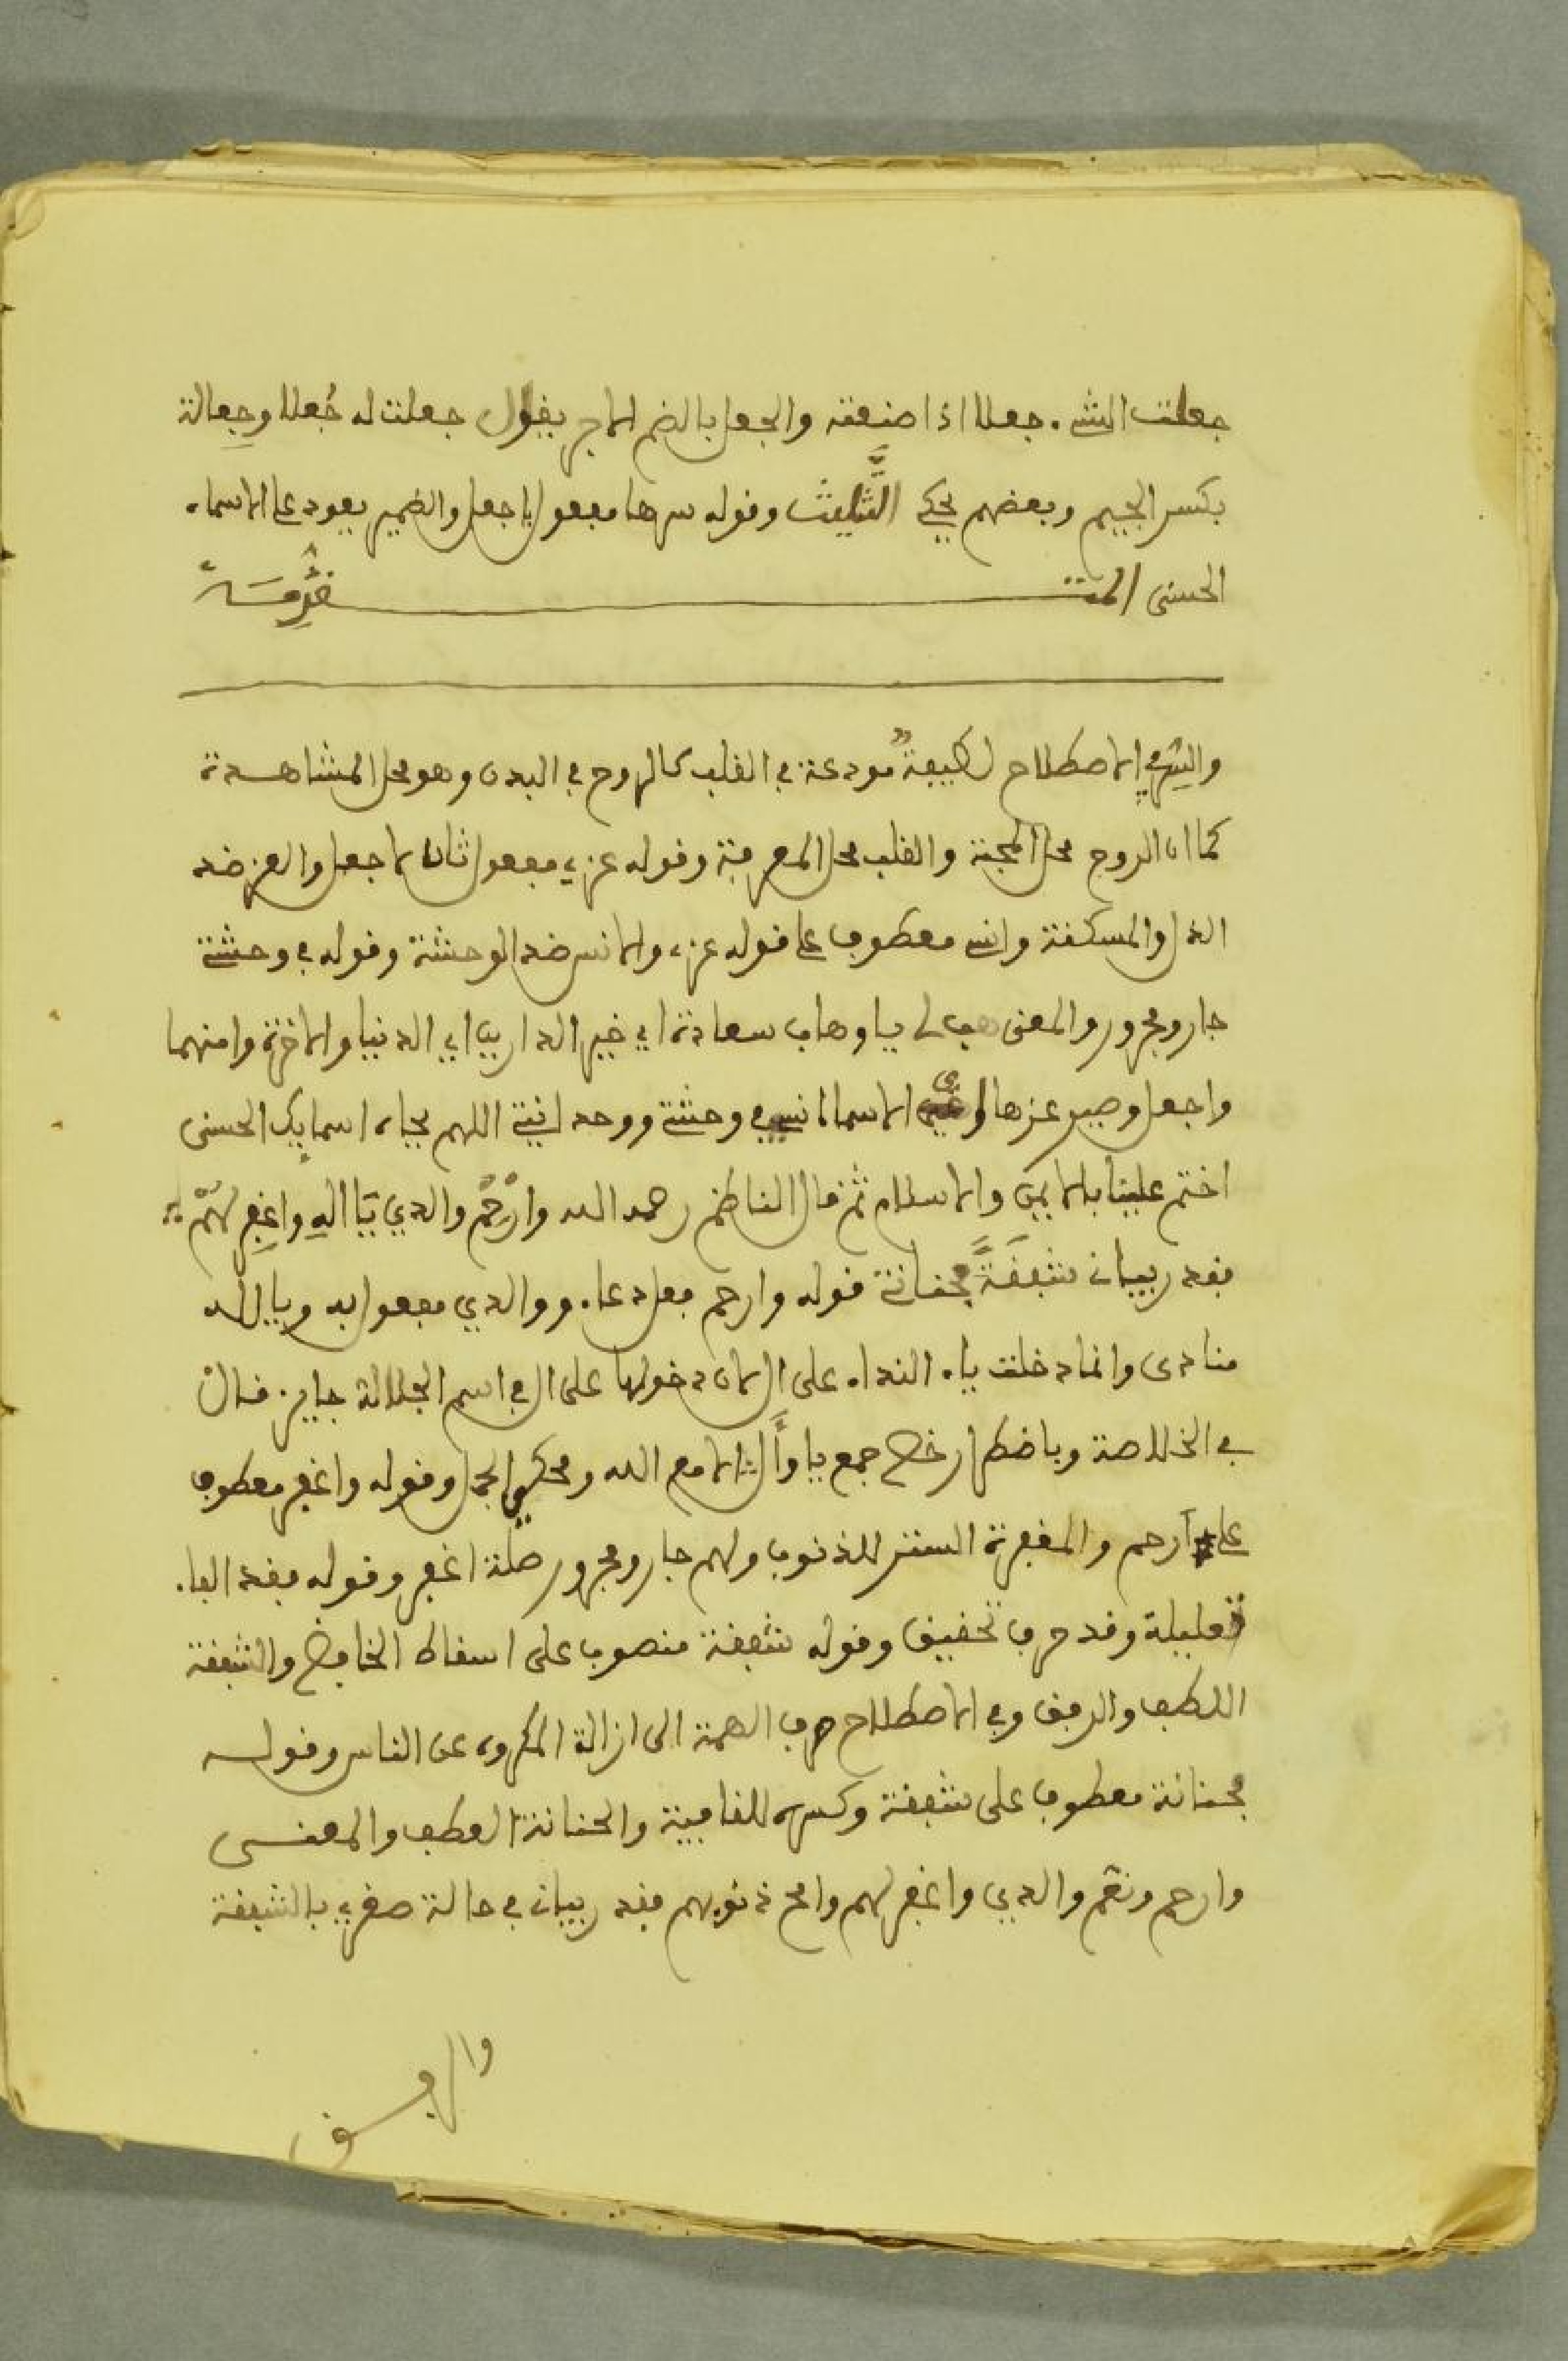 جعلت الشيء جعلا اذا صنعته والجعل بالضم الاجر يقول جعلت له جُعلا وجِعالة
بكسر الجيم وبعضهم يحكي التَّثليث وقوله سرها مفعول اجعل والضمير يعود على الاسماء
الحسنى المتقدمة
والسر في الاصطلاح لطيفة مودعة في القلب كالروح في البدن وهو محل المشاهدة
كما ان الروح محل المحبة والقلب محل المعرفة وقوله عزي مفعول ثان لاجعل والعز ضد
الذل والمسكنة وانسي معطوف على قوله عزي والانس ضد الوحشة وقوله في وحشتي
جار ومجرور والمعنى هب لي يا وهاب سعادة اي خير الدارين اي الدنيا والاخرة وامنهما
واجعل وصير عزها الاسما انسي في وحشتي ووحدانيتي اللهم بجاه اسمايك الحسنى
اختم علينا بالايمن والاسلام ثم قال الناظم رحمه الله وارْحَمْ والدي يَا اللهِ واغْفِر لَهُمْ
فقد ربيان شفقةً بحنانة قوله وارحم فعل دعاء ووالدي مفعول به ويا الله
منادى وانما دخلت ياء النداء على ال لان دخولها على ال في اسم الجلالة جايز قال
في الخلاصة وباضطرار خص جمع يا وأل الا مع الله ومحكي الجمل وقوله واغفر معطوف
على ارحم والمغفرة الستر للذنوب ولهم جار ومجرور صلة اغفر وقوله فقد الفاء
تعليلة وقد حرف تحقيق وقوله شفقة منصوب على اسقاط الخافض والشفقة
اللطف والرفق وفي الاصطلاح صرف الهمة الى ازالة المكروه عن الناس وقوله
بحنانة معطوف على شفقة وكسره للقافية والحنانة العطف والمعنى
وارحم ونعم والدي واغفر لهم وامح ذنوبهم فقد ربيان في حالة صغري بالشفقة
والرفق